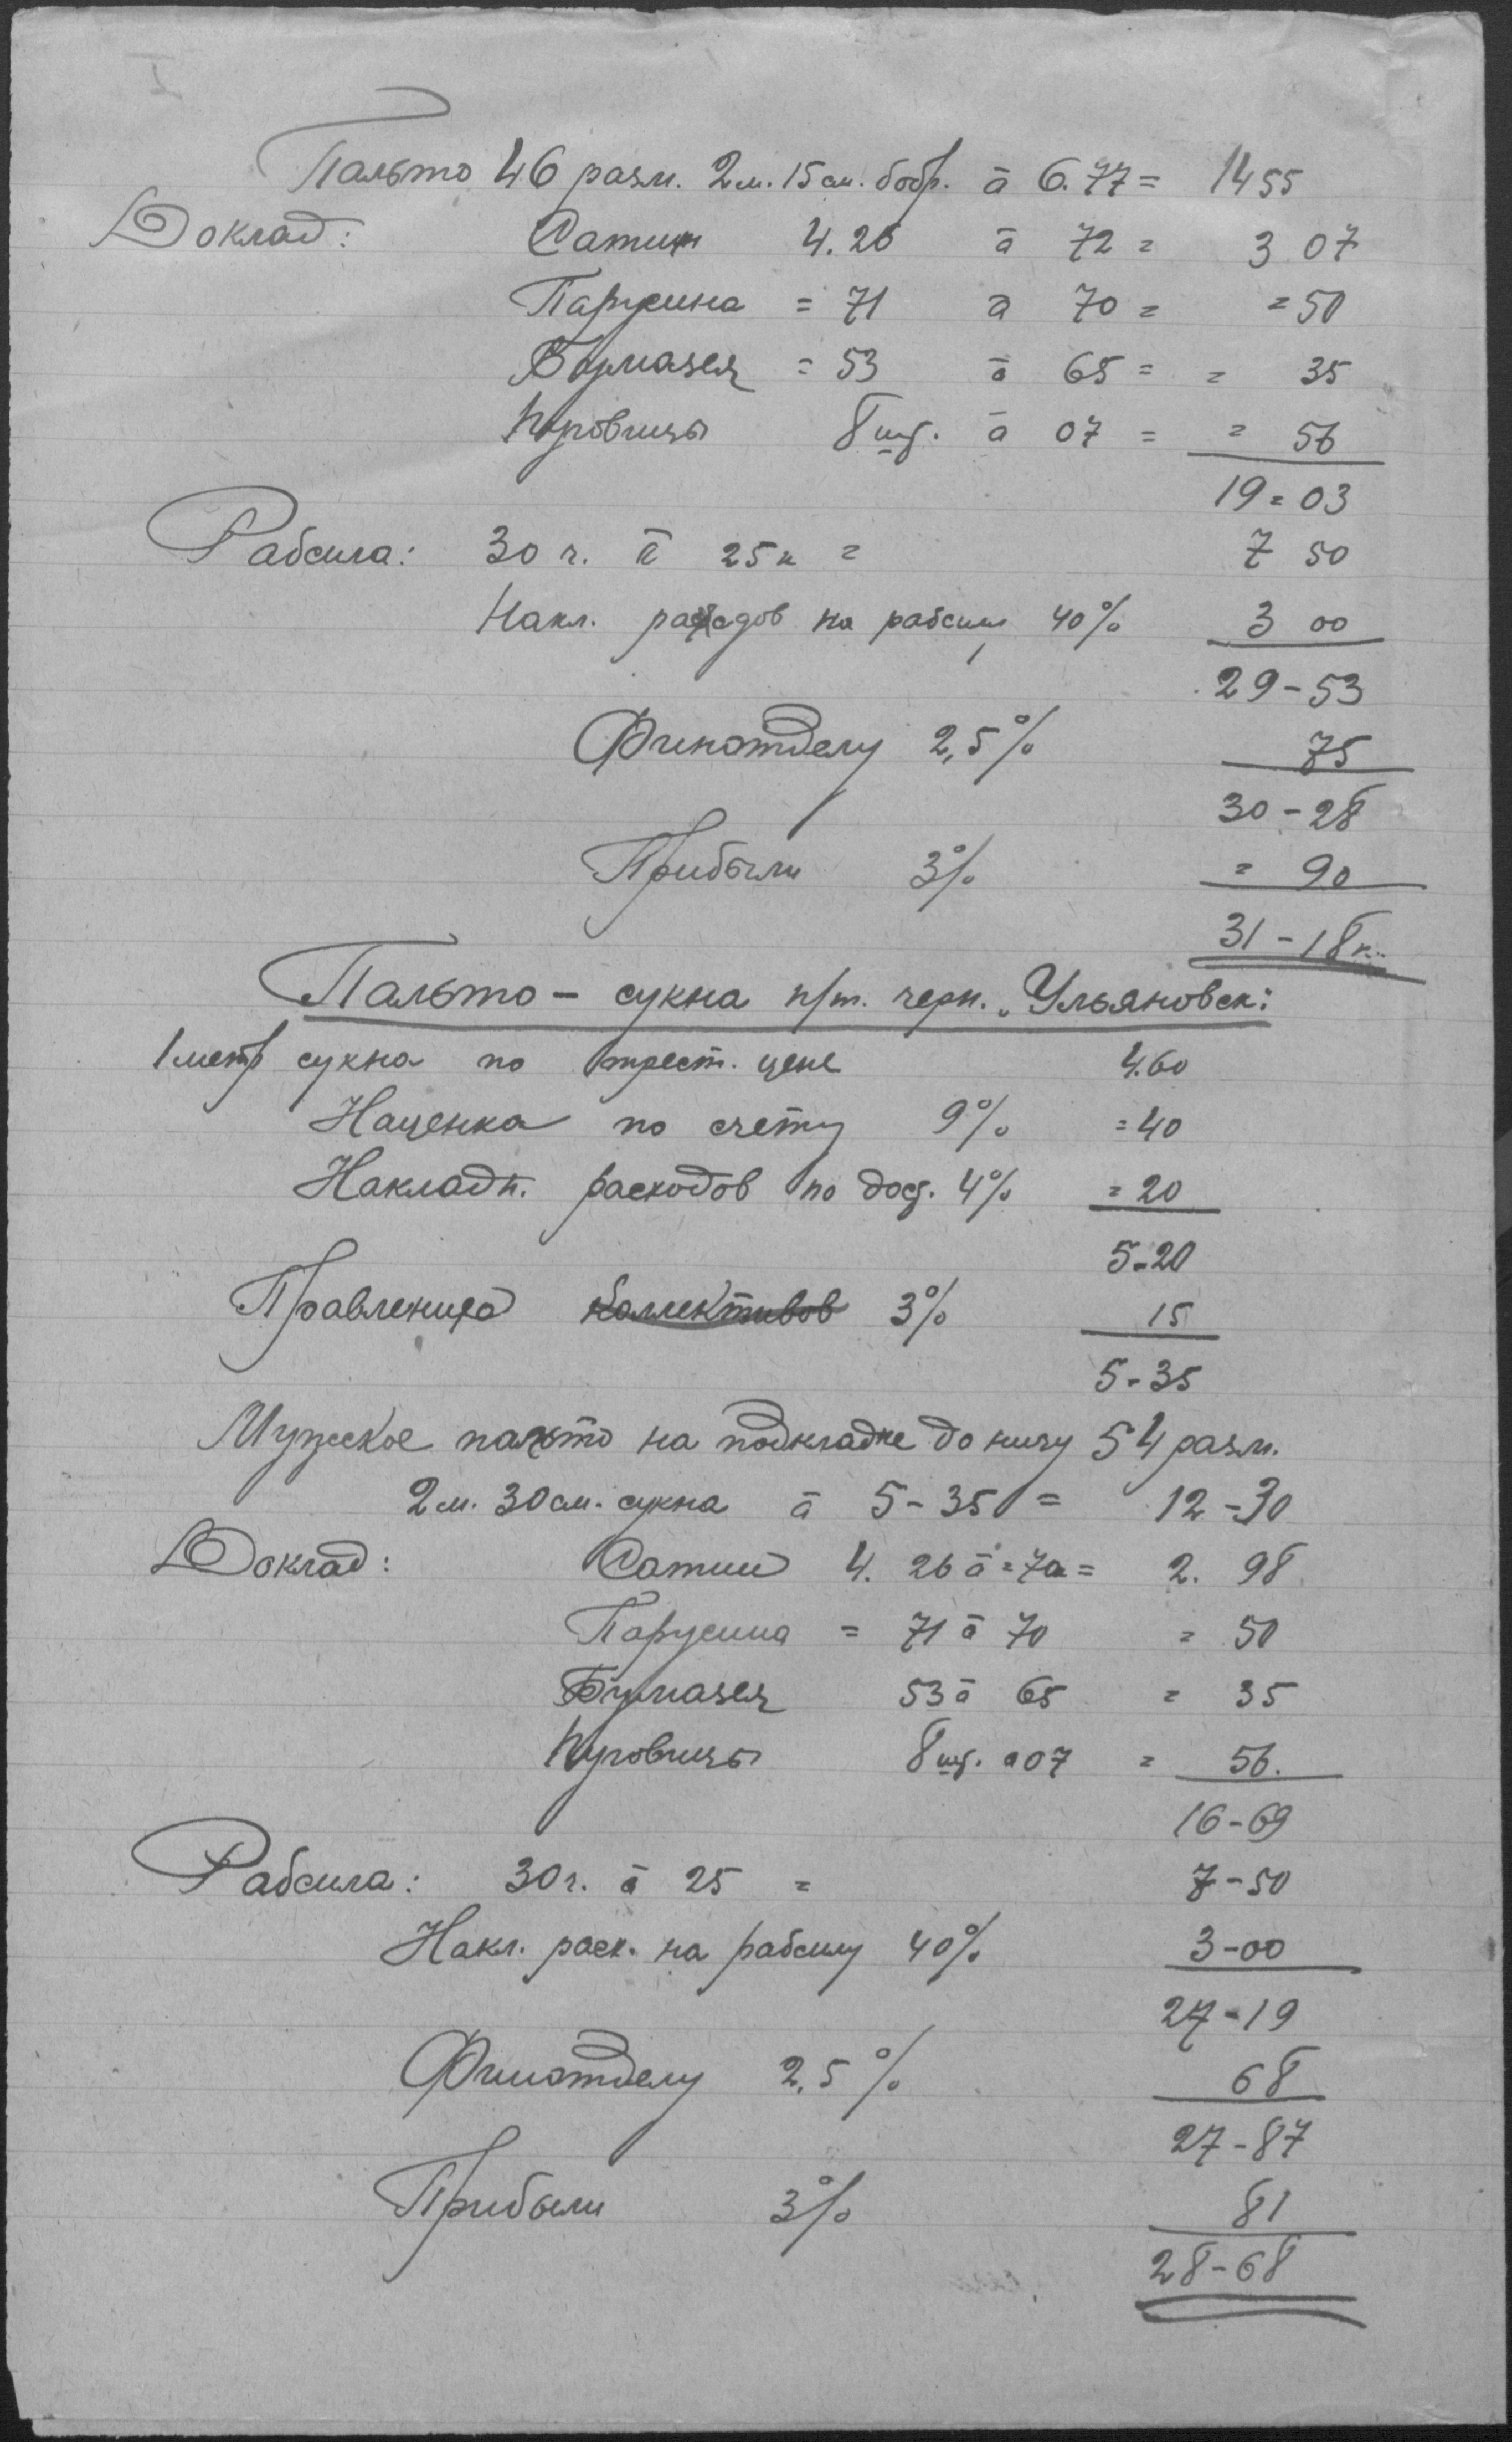 I
Пальто 46 разм. 2 м. 15 см. бобр. à 6.77 = 14 55
Доклад: Сатин 4.26 à 72 = 3 07
Парусина = 71 à 70 = = 50
Бумазея = 53 à 65 = = 35
Пуговицы 8 шт. à 07 = = 56
19 = 03
Рабсила: 30 ч. à 25 к = 7 50
Накл. расходов на рабсилу 40% 3 00
29 - 53
Финотделу 2,5% 75
30 - 28
Прибыли 3% = 90
31 - 18 к.
Пальто - сукна п/т. черн. „Ульяновск:
1 метр сукна по трест. цене 4.60
Наценка по счету 9% = 40
Накладн. расходов по дост. 4% = 20
5-20
Правлению коллективов 3% 15
5-35
Мужское пальто на подкладке до низу 54 разм.
2 м. 30 см. сукна à 5-35 = 12-30
Доклад: Сатин 4. 26 à = 70 = 2. 98
Парусина = 71 à 70 = 50
Бумазея 53 à 65 = 35
Пуговицы 8 шт. à 07 = 56.
16-69
Рабсила: 30 ч. à 25 = 7-50
Накл. расх. на рабсилу 40% 3-00
27-19
Финотделу 2,5% 68
27-87
Прибыли 3% 81
28-68